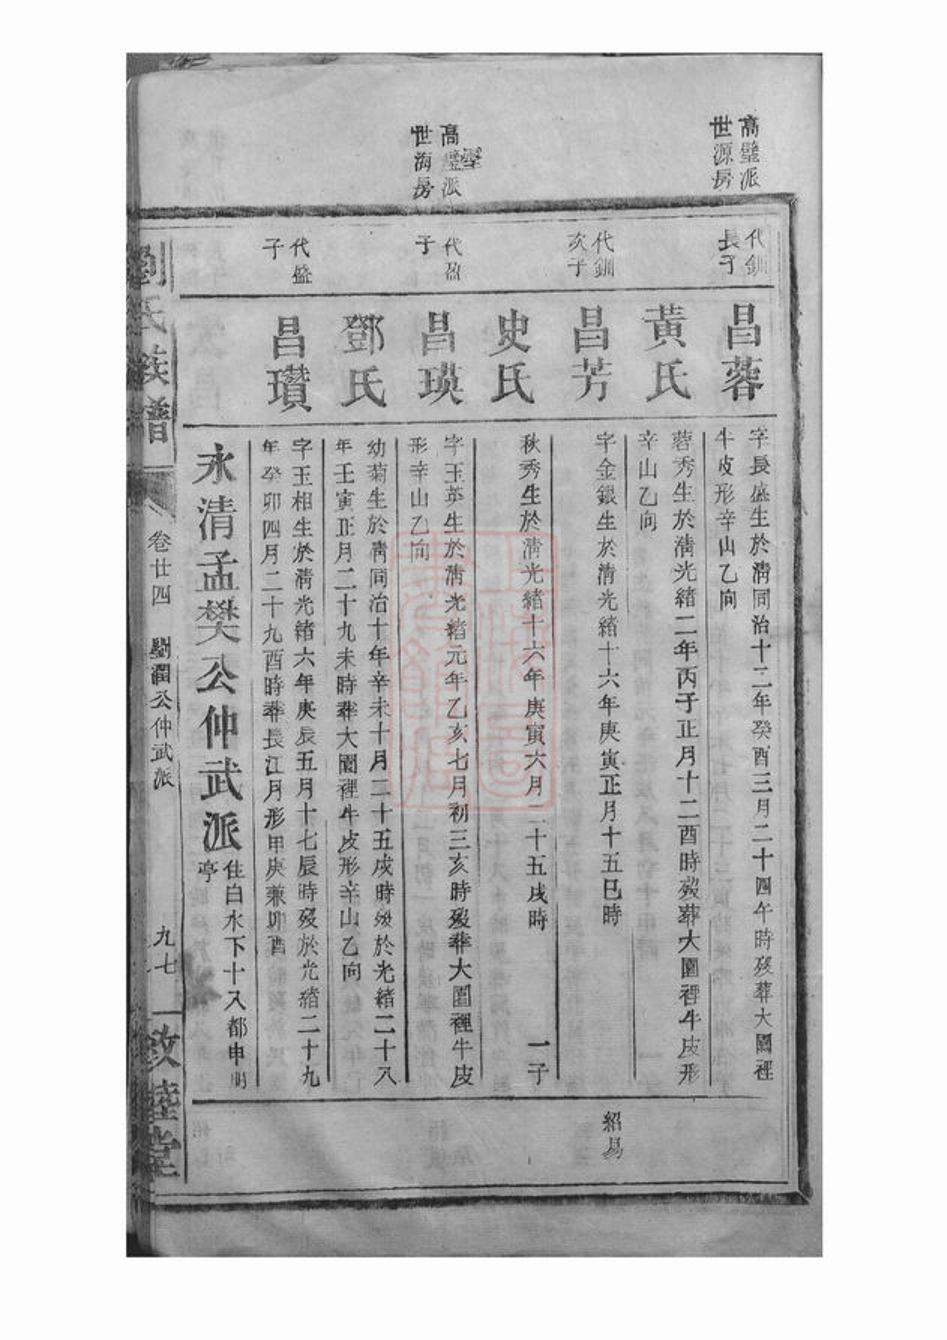 高璧派
世源房
高璧派
世海房
代釧
長子
昌蓉
字長盛生於清同治十二年癸酉三月二十四午時歿葬大園裡
牛皮形辛山乙向
黃氏
蓉秀生於清光緒二年丙子正月十二酉時歿葬大園裡牛皮形
辛山乙向
代釧
次子
昌芳
字金銀生於清光緒十六年庚寅正月十五巳時
紹易
史氏
秋秀生於清光緒十六年庚寅六月二十五戌時
一子
代盈
子
昌瑛
字玉英生於清光緒元年乙亥七月初三亥時歿葬大園裡牛皮
形辛山乙向
鄧氏
幼菊生於清同治十年辛未十月二十五戌時歿於光緒二十八
年壬寅正月二十九未時葬大園裡牛皮形辛山乙向
代盛
子
昌瓚
字玉相生於清光緒六年庚辰五月十七辰時歿於光緒二十九
年癸卯四月二十九酉時葬長江月形甲庚兼卯酉
永清孟樊公仲武派
住白水下十八都申明
亭
劉氏族譜
卷廿四
劉潤公仲武派
九七
敦睦堂